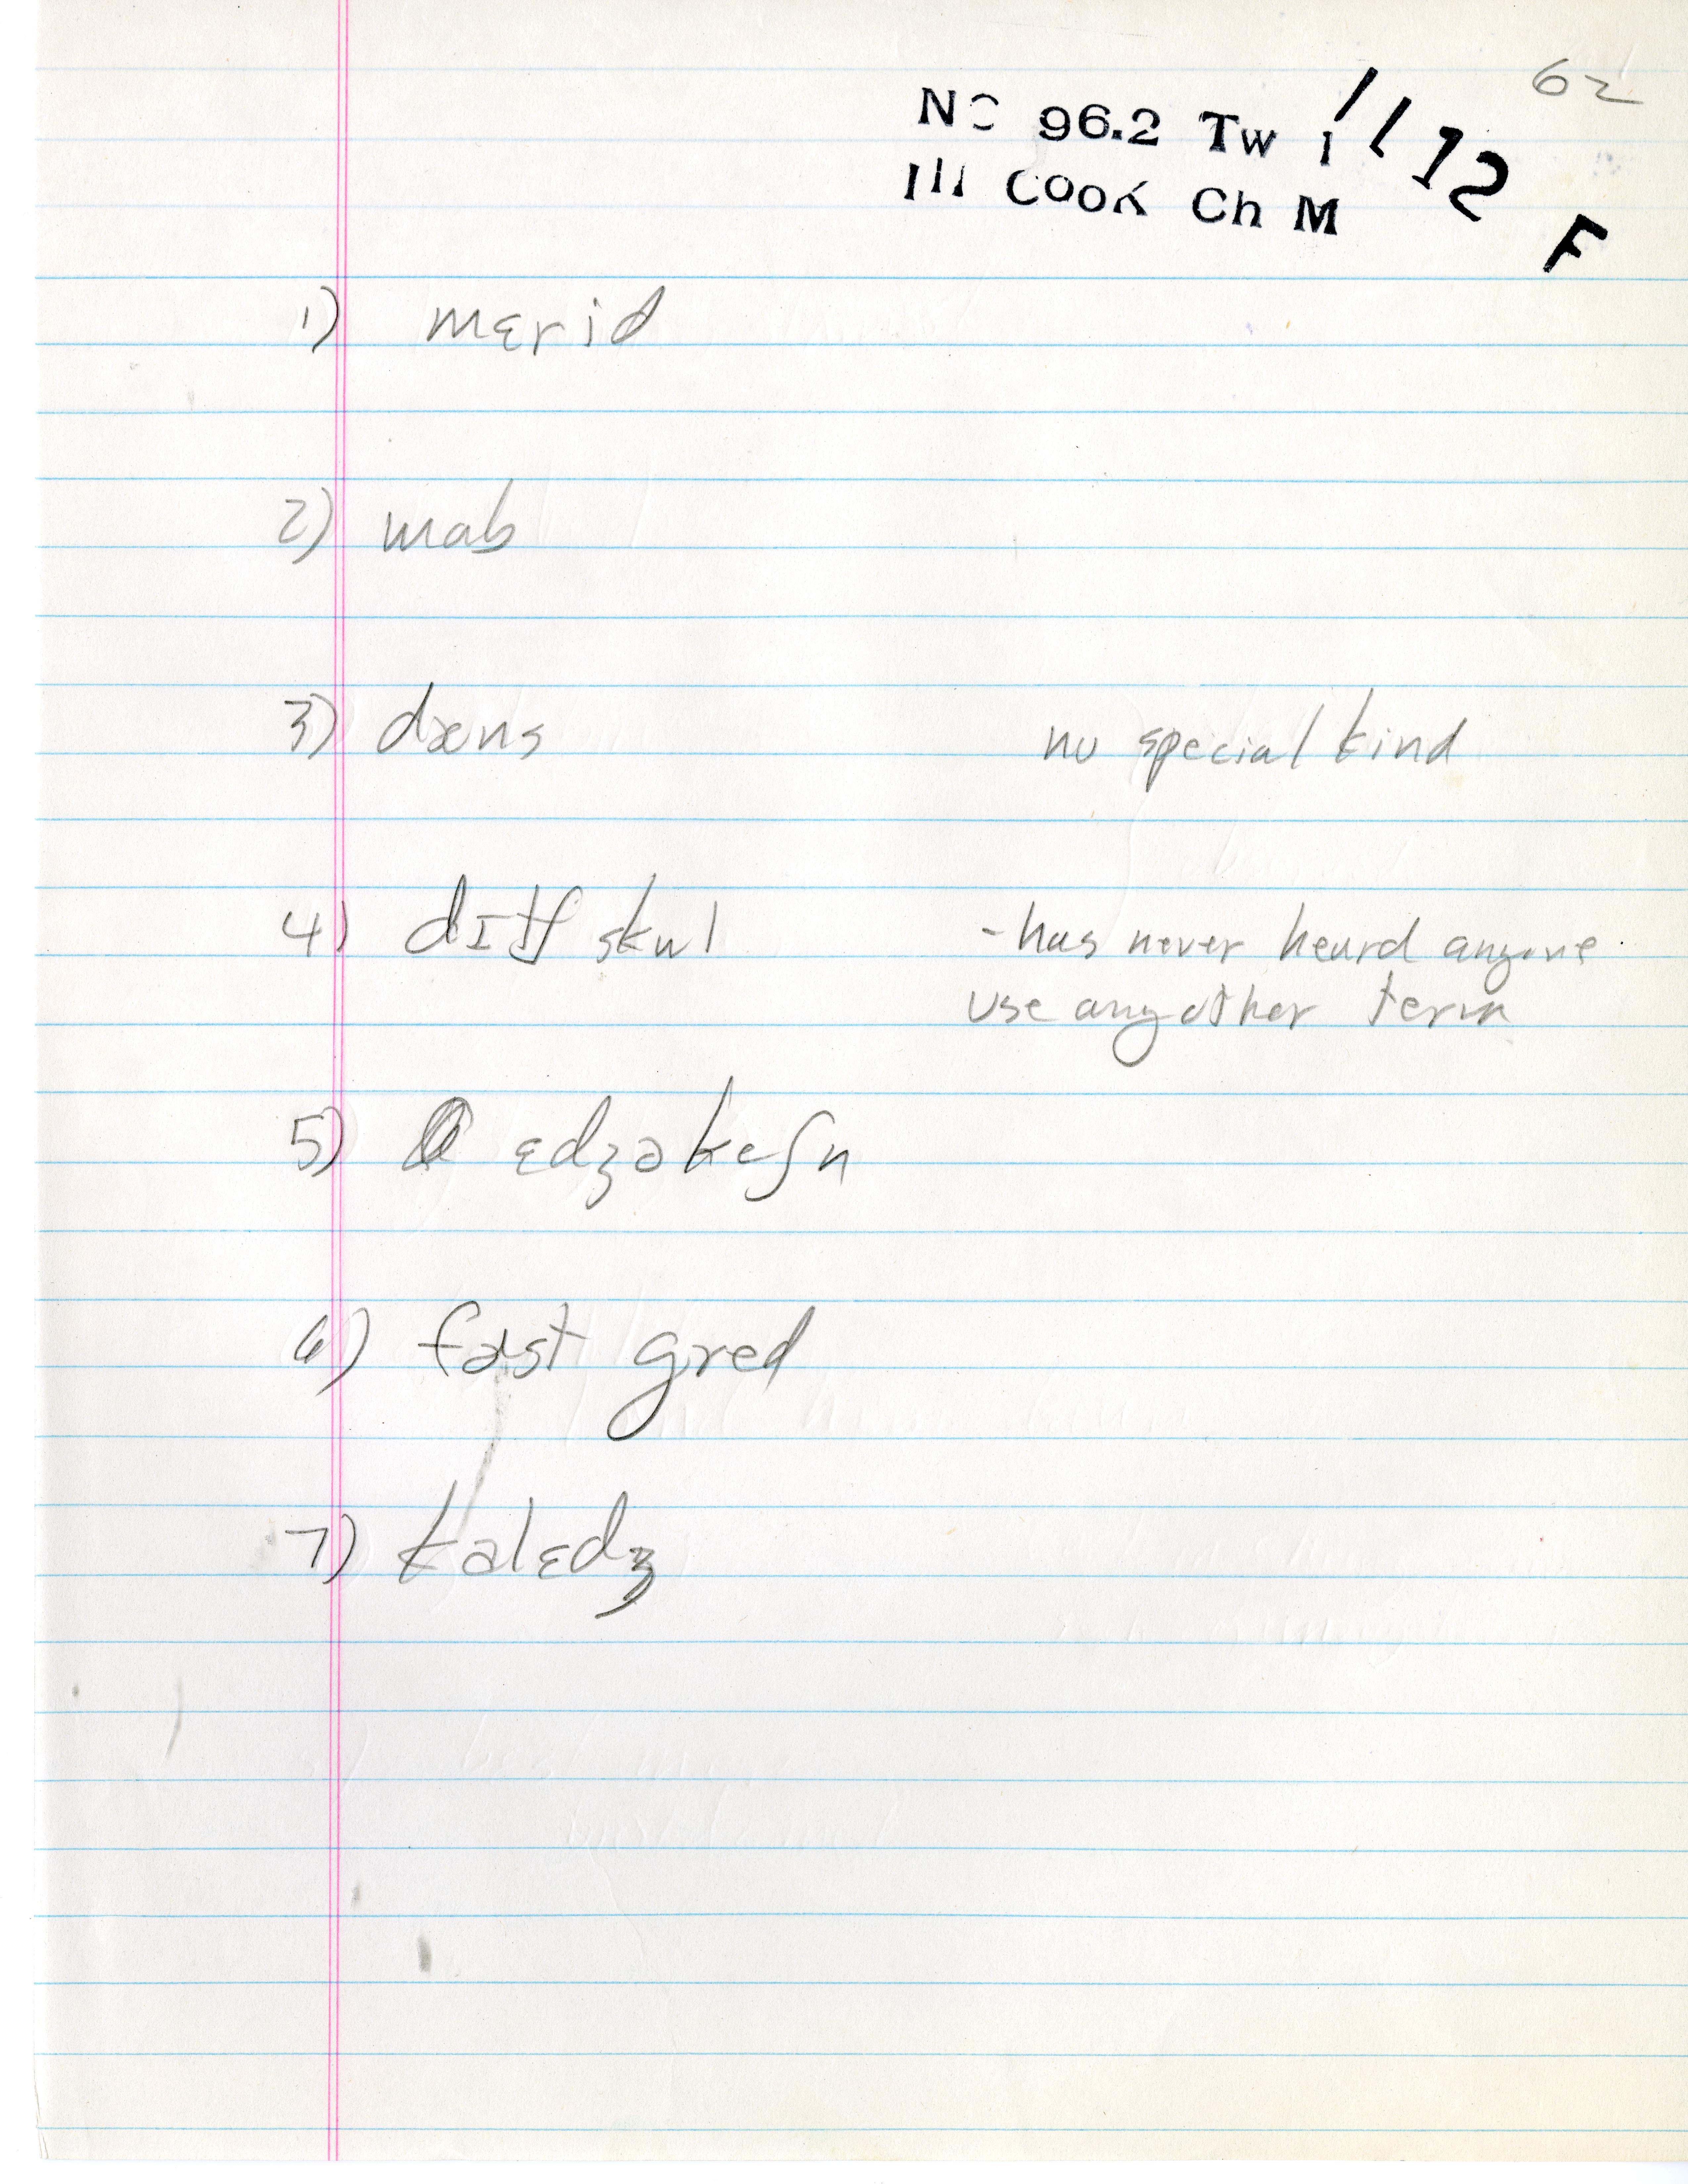 62
NC 96.2 Tw 1 1 1 12 F
Ill Cook Ch M
1) mɛrid
2) mab
3) dæns no special kind
4) dɪtʃ skul - has never heard anyone
use any other term
5) ɛdʒəkeʃn
6) fəst gred
7) kalɛdʒ